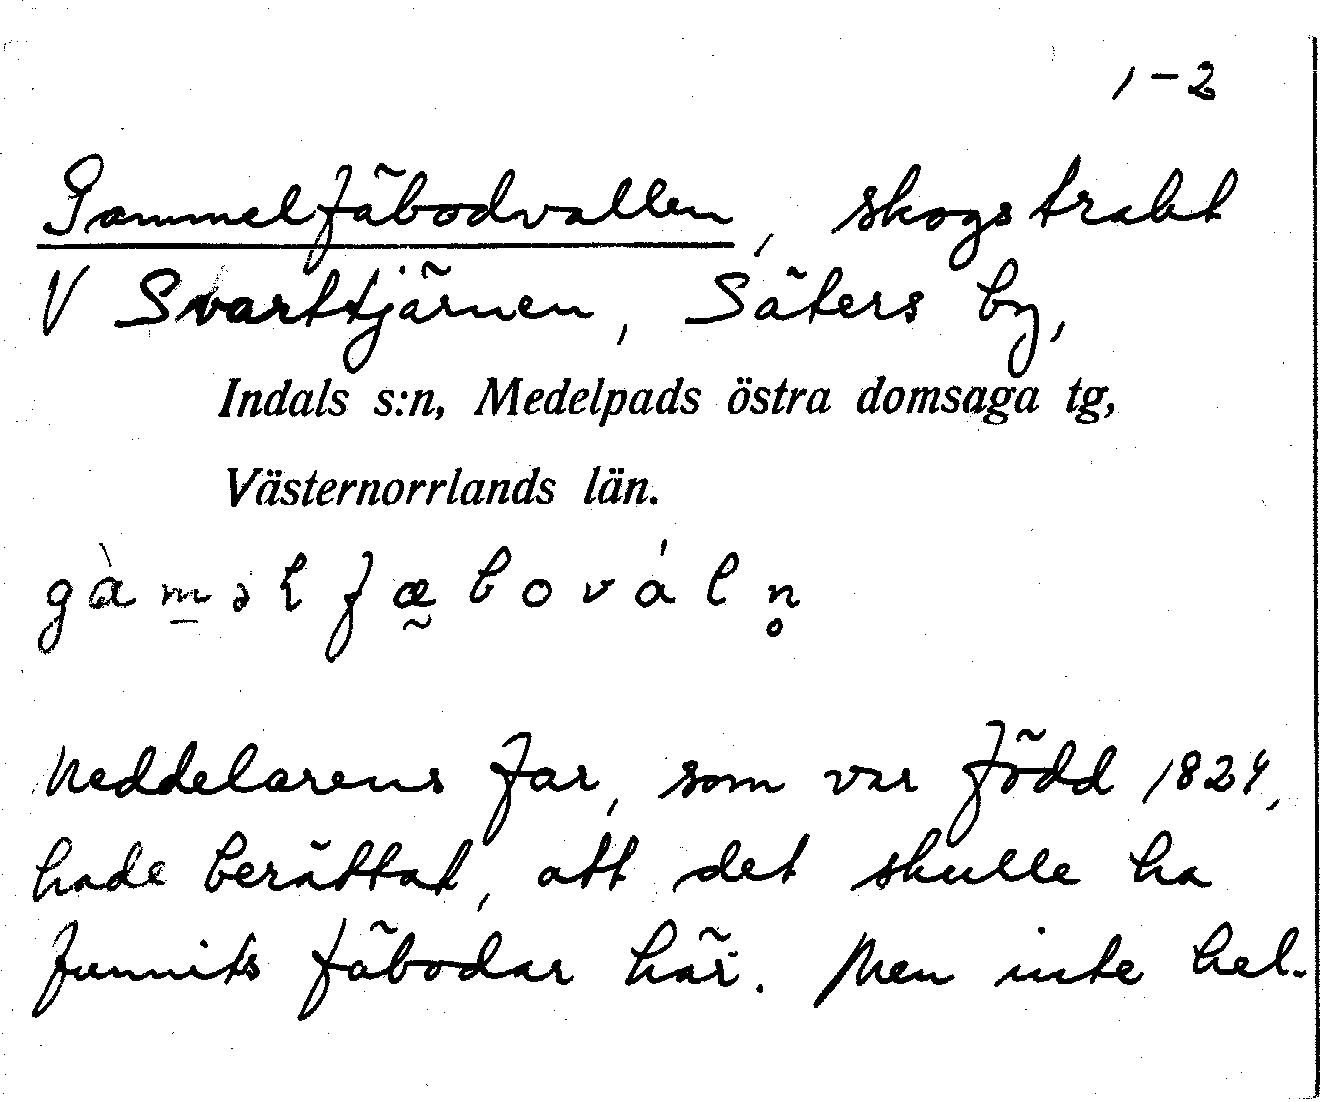 1-2
Gammelfäbodvallen, skogstrakt
V Svarttjärnen, Säters by,
Indals s:n, Medelpads östra domsaga tg,
Västernorrlands län.
gàm̲əl fæ̰bovál n̥
Meddelarens far, som var född 1824,
hade berättat, att det skulle ha
funnits fäbodar här. Men inte hel-